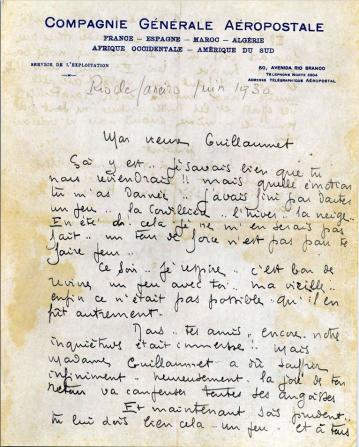 COMPAGNIE GÉNÉRALE AÉROPOSTALE
FRANCE – ESPAGNE – MAROC – ALGÉRIE
AFRIQUE OCCIDENTALE – AMÉRIQUE DU SUD
SERVICE DE L'EXPLOITATION
50, AVENIDA RIO BRANCO
TELEPHONE NORTE 6904
ADRESSE TÉLÉGRAPHIQUE AÉROPOSTAL
Rio de Janeiro juin 1930
Mon vieux Guillaumet
Ça y est .. je savais bien que tu
nous reviendrais !! mais quelle émotion
tu m'as donnée .. j'avais fini par douter
un peu .. la Cordillère .. l'hiver .. la neige.
En été .. cela je ne m'en serais pas
fait .. un tour de force n'est pas pour te
faire peur ..
Ce soir .. je respire .. c'est bon de
revivre un peu avec toi .. ma vieille ..
enfin ce n'était pas possible qu'il en
fût autrement.
Mais .. tes amis, encore notre
inquiétude était immense !! Mais
Madame Guillaumet a dû souffrir
infiniment .. heureusement la joie de ton
retour va compenser toutes ses angoisses
Et maintenant sois prudent.
tu lui dois bien cela .. un peu .. et à tous